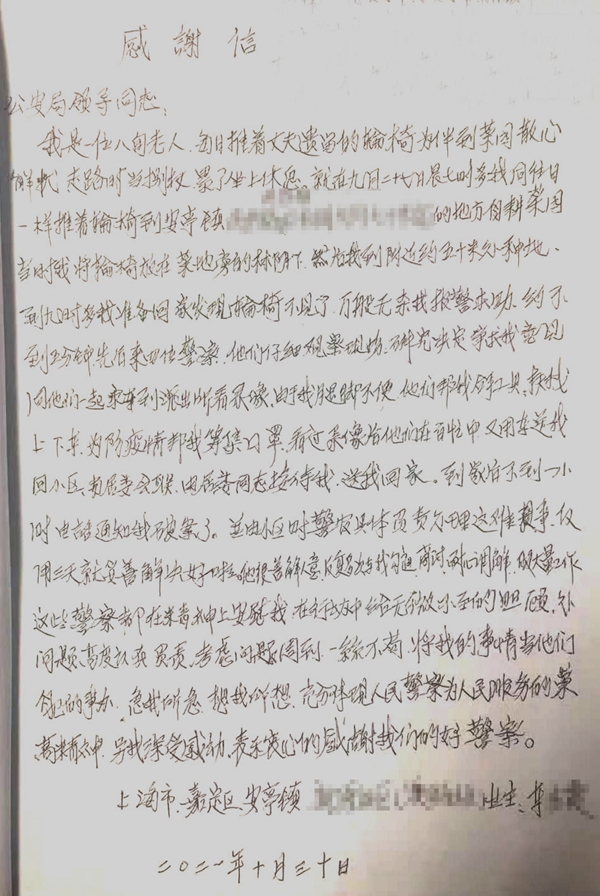 感謝信
公安局领导同志：
我是一位八旬老人，每日推着丈夫遗留的輪椅为伴到菜园散心
解忧，走路时当拐杖，累了坐上休息。就在九月二十八日晨七时多我同往日
一样推着輪椅到安亭镇 的地方自耕菜园
当时我将輪椅放在菜地旁的林阴下，然后我到附近约五十米外种地。
到九时多我准备回家发现輪椅不見了，万般无奈我报警求助。约不
到2分钟先后来四位警察，他们仔细观察现场，研究决定 我
同他们一起乘车到派出所看录像，由于我腿脚不便，他们帮我拿工具，扶我
上下来，为防疫情帮我 口罩，看过录像后他们在百忙中又用车送我
回小区， 居委会联 ，由居委同志接待我，送我回家。到家后不到一小
时电话通知我破案了。并由小区 警 具体负 理这 事，仅
用三天就妥善解决好 他很善解人意反复多次与我沟通，商讨，耐心调解，做大量工作
这些警察都在 神上安慰我，在行动中给无微不至的照顾，处
问题高度认真负责，考虑问题周到，一丝不苟，将我的事情当他们
自己的事办，急我所急，想我所想，充分体现人民警察为人民服务的崇
高精神，令我深受感动，表示衷心的感谢我们的好警察。
上海市嘉定区安亭镇 业主：李
二〇二一年十月三十日